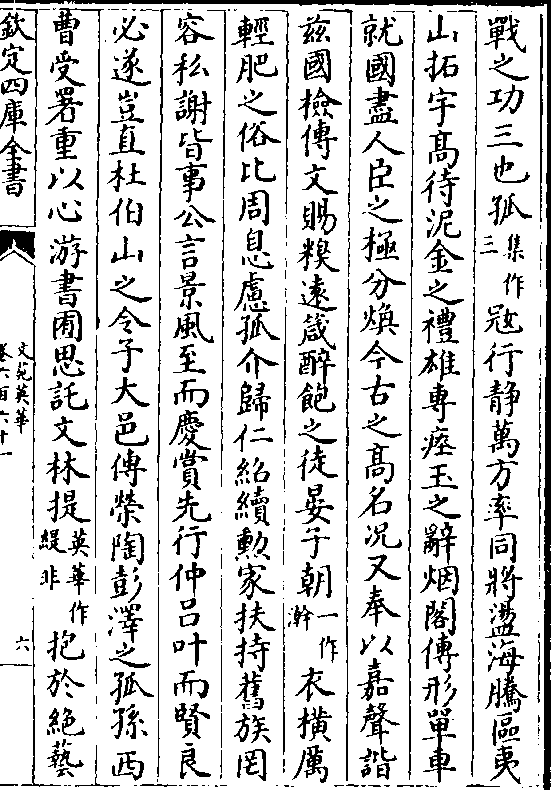 戰之功三也孤集作三冦行静萬方率同將盪海騰區夷
山拓宇髙待泥金之禮雄專瘞玉之辭烟閣傳形單車
就國盡人臣之極分煥今古之髙名况又奉以嘉聲諧
兹國檢傳文賜糗遠箴醉飽之徒晏子朝一作澣衣横厲
輕肥之俗比周息慮孤介歸仁紹續勲家扶持舊族罔
容私謝皆事公言景風至而慶賞先行仲吕叶而賢良
必遂豈直杜伯山之令子大邑傳榮陶彭澤之孤孫西
曹受署重以心游書圃思託文林提英華作緹非抱於絶藝
欽定四庫全書
文苑英華
卷六百六十一
六